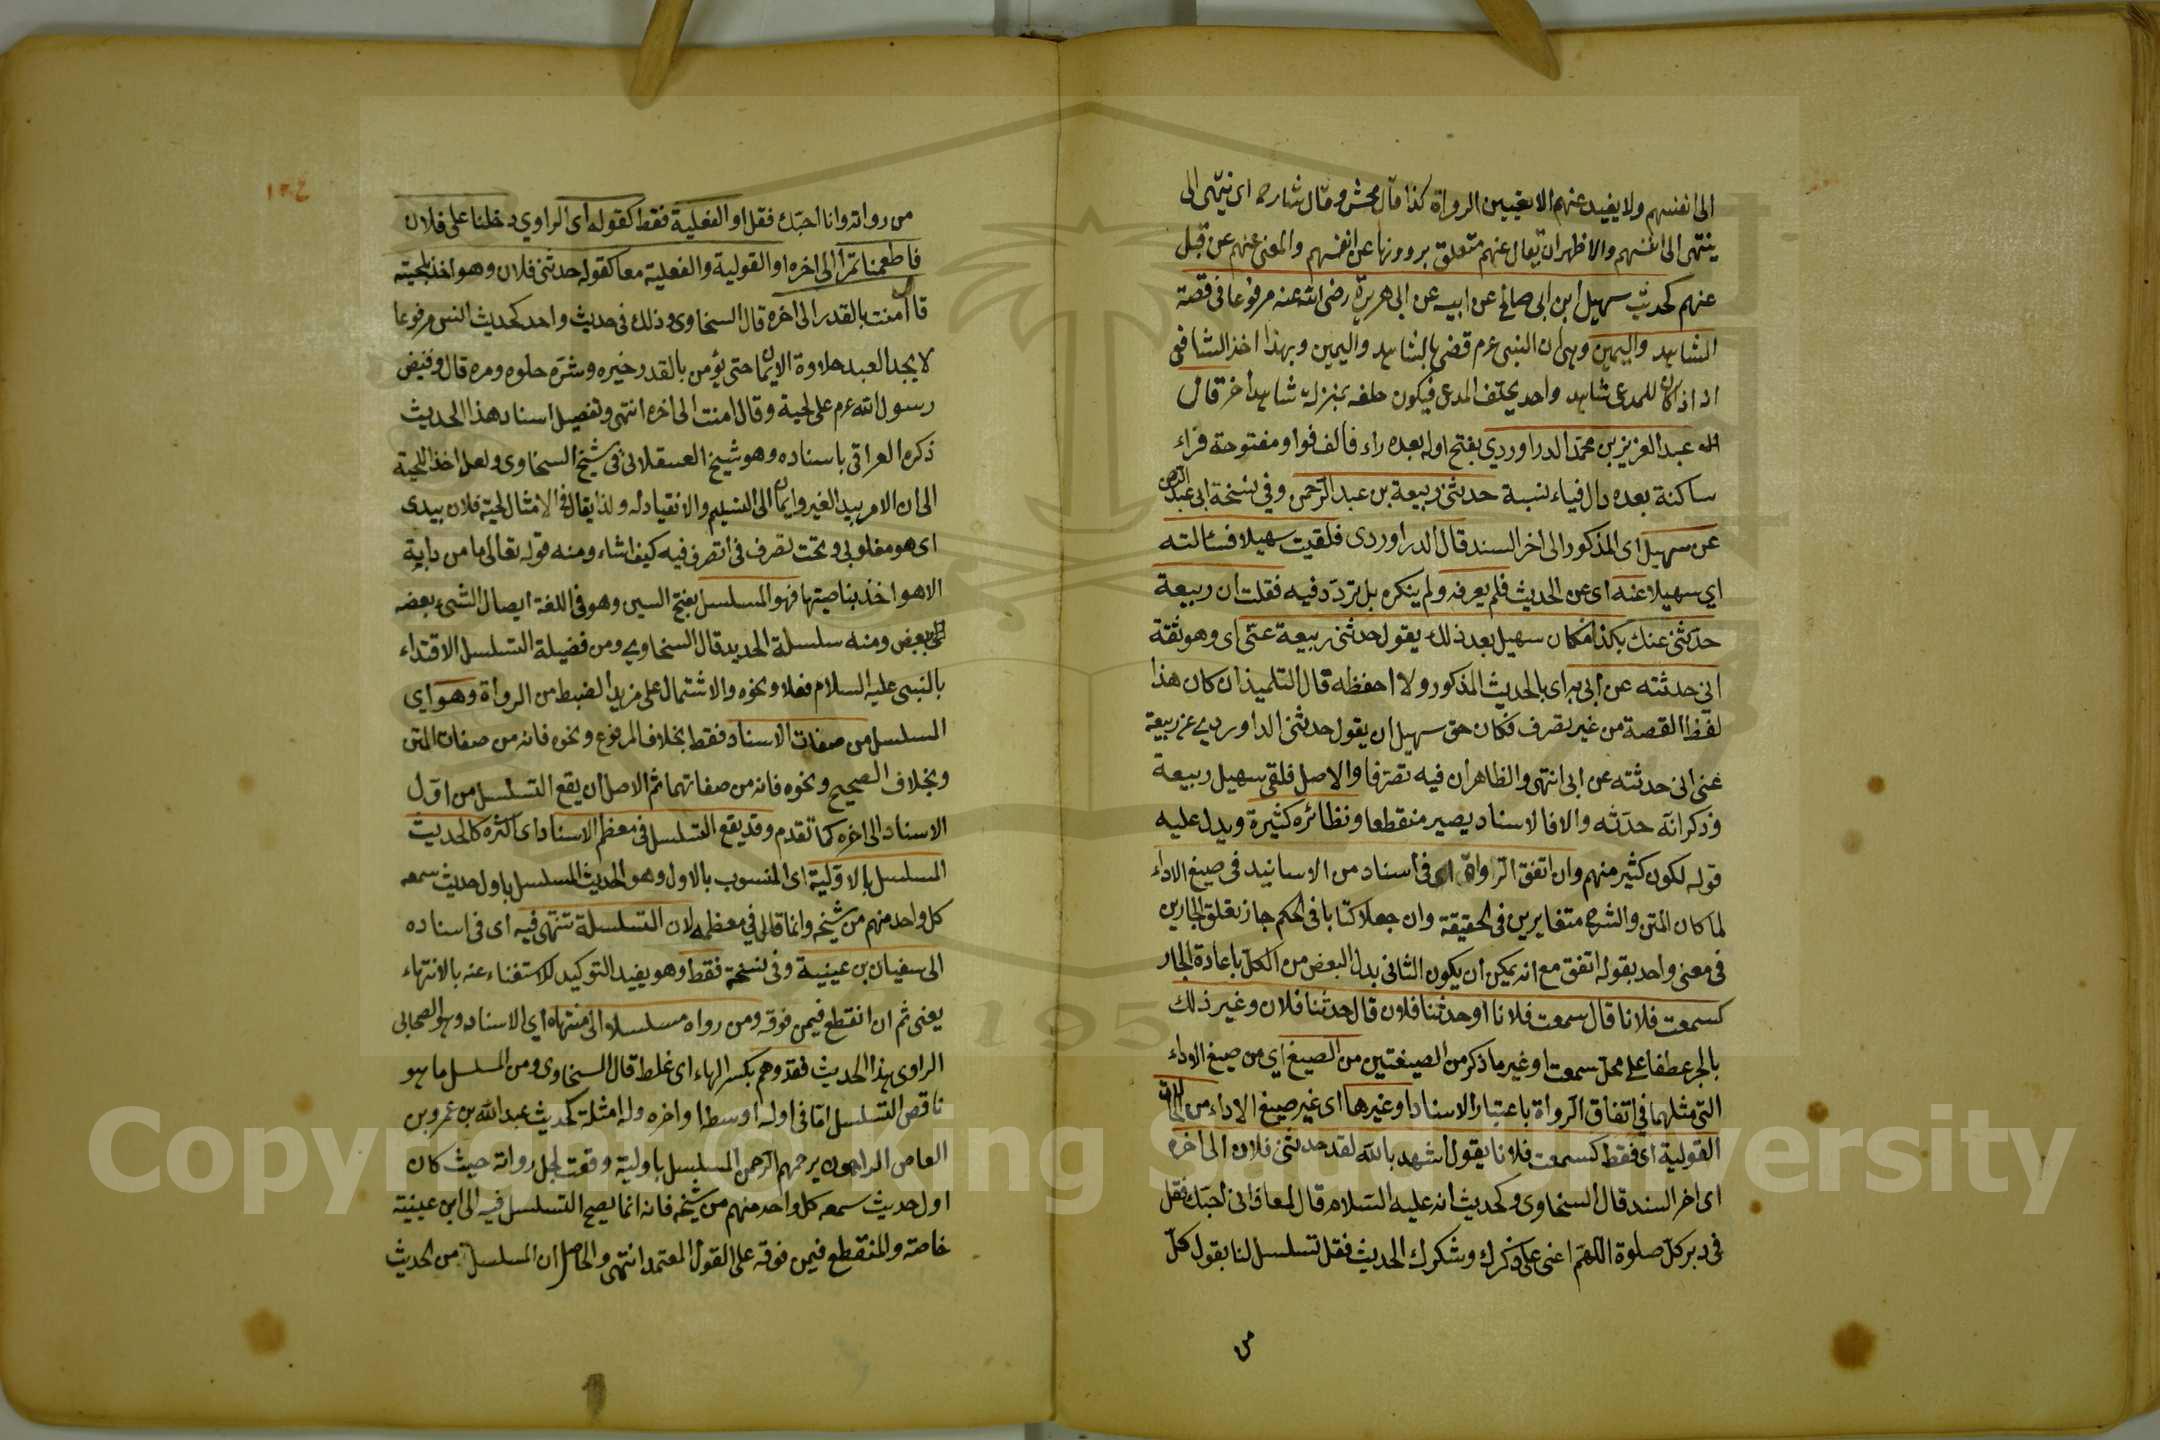 الى انفسهم ولا يفيد عنهم الا تعيين الرواة كذا قال محش وقال شارح اى ينتهى الى
ينتهى الى انفسهم والاظهر ان يقال عنهم متعلق بروونها عن انفسهم والمعنى عنهم عن قبل
عنهم كحديث سهيل ابن ابى صالح عن ابيه عن ابى هريرة رضى الله عنه مرفوعا فى قصة
الشاهد واليمين وهى ان النبى عرم قضى بالشاهد واليمين وبهذا اخذ الشافعى
اذ اذا كان للمدعى شاهد واحد يحلف المدعى فيكون حلفه بمنزلة شاهد اخر قال
عبد العزيز بن محمد الدراوردي بفتح اوله بعده راء فالف فواو مفتوحة فراء
ساكنة بعده دال فياء نسبة حدثنى ربيعة بن عبد الرحمن وفي نسخة ابى عبد الرحمن
عن سهيل اى المذكور الى اخر السند قال الدراوردى فلقيت سهيلا فسالته
اي سهيلا عنه اى عن الحديث فلم يعرفه ولم ينكره بل تردد فيه فقلت ان ربيعة
حدثنى عنك بكذا فكان سهيل بعد ذلك يقول حدثنى ربيعة عنى اى وهو ثقة
انى حدثته عن ابى به اى بالحديث المذكور ولا احفظه قال التلميذ ان كان هذا
لفظ القصة من غير تصرف فكان حق سهيل ان يقول حدثنى الداوردي عن ربيعة
عنى انى حدثته عن ابى انتهى والظاهر ان فيه تصرفا والاصل فلقى سهيل ربيعة
وذكر انه حدثه والا فالاسناد يصير منقطعا ونظائره كثيرة ويدل عليه
قوله لكون كثير منهم وان اتفق الرواة اى فى اسناد من الاسانيد فى صيغ الاداء
لما كان المتن والشرح متغايرين فى الحقيقة وان جعلا كتابا فى الحكم جاز تعلق الجارين
فى معنى واحد بقوله اتفق مع انه يمكن ان يكون الثانى بدل البعض من الكل باعادة الجار
كسمعت فلانا قال سمعت فلانا او حدثنا فلان قال حدثنا فلان وغير ذلك
بالجر عطفا على محل سمعت او غير ما ذكر من الصيغتين من الصيغ اي من صيغ الاداء
التى مثلهما فى اتفاق الرواة باعتبار الاسناد او غيرها اى غير صيغ الاداء من الحالات
القولية اى فقط كسمعت فلانا يقول اشهد بالله لقد حدثنى فلان الى اخره
اى اخر السند قال السخاوى وكحديث انه عليه السلام قال لمعاذ انى احبك فقل
فى دبر كل صلوة اللهم اعنى على ذكرك وشكرك الحديث فقل تسلسل لنا بقول كل
من
١٣٤
من رواته وانا احبك فقل او الفعلية فقط كقوله اى الراوي دخلنا على فلان
فاطعمنا تمرا الى اخره او القولية والفعلية معا كقوله حدثنى فلان وهو اخذ بلحيته
قال آمنت بالقدر الى اخره قال السخاوى وذلك فى حديث واحد كحديث انس مرفوعا
لا يجد العبد حلاوة الايمان حتى يؤمن بالقدر خيره وشره حلوه ومره قال وقبض
رسول الله عرم على لحيته وقال امنت الى اخره انتهى وتفصيل اسناد هذا الحديث
ذكره العراقى باسناده وهو شيخ العسقلانى شيخ السخاوى ولعل اخذ اللحية
الى ان الامر بيد الغير وايمان الى التسليم والانقياد له ولذا يقال فى الامثال لحية فلان بيدى
اى هو مغلوبى وتحت تصرفى اتصرف فيه كيف اشاء ومنه قوله تعالى ما من دابة
الا هو اخذ بناصيتها فهو المسلسل بفتح السين وهو فى اللغة ايصال الشئ بعضه
ببعض ومنه سلسلة الحديد قال السخاوي ومن فضيلة التسلسل الاقتداء
بالنبى عليه السلام فعلا ونحوه والاشتمال على مزيد الضبط من الرواة وهو اي
السلسل من صفات الاسناد فقط بخلاف المرفوع ونحوه فانه من صفات المتن
وبخلاف الصحيح ونحوه فانه من صفاتهما ثم الاصل ان يقع التسلسل من اول
الاسناد الى اخره كما تقدم وقد يقع التسلسل فى معظم الاسناد اى اكثره كالحديث
المسلسل بالاولية اى المنسوب بالاول وهو الحديث المسلسل باول حديث سمعه
كل واحد منهم من شيخه وانما قال في معظمه لان السلسلة تنتهى فيه اى فى اسناده
الى سفيان بن عيينة وفى نسخة فقط وهو يفيد التوكيد للاستغناء عنه بالانتهاء
يعنى ثم ان انقطع فيمن فوقه ومن رواه مسلسلا الى منتهاه اي الاسناد وهو الصحابى
الراوى هذا الحديث فقد وهم بكسر الهاء اى غلط قال السخاوى ومن المسلسل ما هو
ناقص التسلسل اما فى اوله او وسط او اخره وله امثلة كحديث عبد الله بن عمرو بن
العاص الراحمون يرحمهم الرحمن المسلسل باولية وقعت لجل رواته حيث كان
اول حديث سمعه كل واحد منهم من شيخه فانه انما يصح التسلسل فيه الى ابن عيينة
خاصة والمنقطع فيمن فوقه على القول المعتمد انتهى والحاصل ان المسلسل من الحديث
Copyright © King Saud University
195